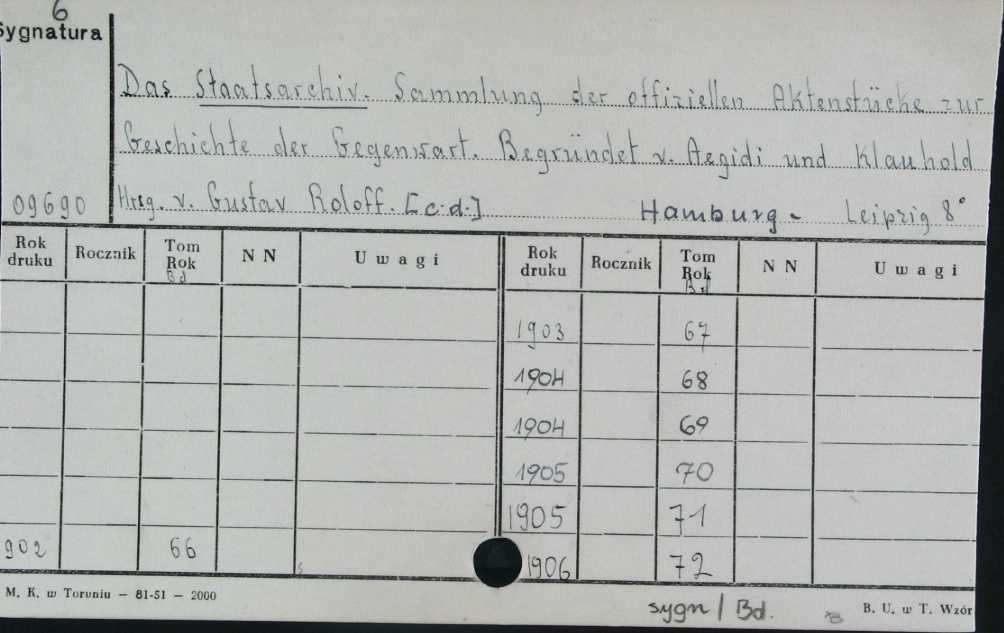 6
Sygnatura
Das Staatsarchiv. Sammlung der offiziellen Aktenstücke zur
Geschichte der Gegenwart. Begründet v. Aegidi und Klauhold
09690 Hrsg. v. Gustav Roloff. [c.d.] Hamburg - Leipzig 8°
Rok druku Rocznik Tom Rok Bd N N Uwagi Rok druku Rocznik Tom Rok Bd N N Uwagi
1903 67
1904 68
1904 69
1905 70
1905 71
902 66 1906 72
M. K. w Toruniu — 81-51 — 2000
sygn / Bd. B. U. w T. Wzór